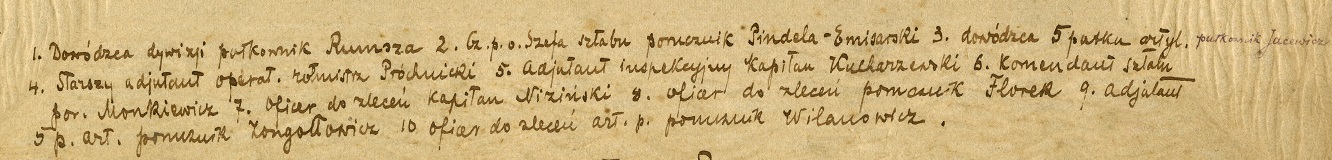 1. Dowódca dywizji pułkownik Rumsza 2. Cz. p. o. Szefa sztabu porucznik Pindela-Emisarski 3. dowódca 5 pułku artyl. pułkownik Jacewicz
4. Starszy adjutant operat. rotmistrz Próchnicki 5. Adjutant inspekcyjny kapitan Kucharzewski 6. Komendant sztabu
por. Monkiewicz 7. oficer do zleceń kapitan Niziński 8. oficer do zleceń porucznik Florek 9. adjutant
5 p. art. porucznik Zongołłowicz 10 oficer do zleceń art. p. porucznik Wilanowicz .